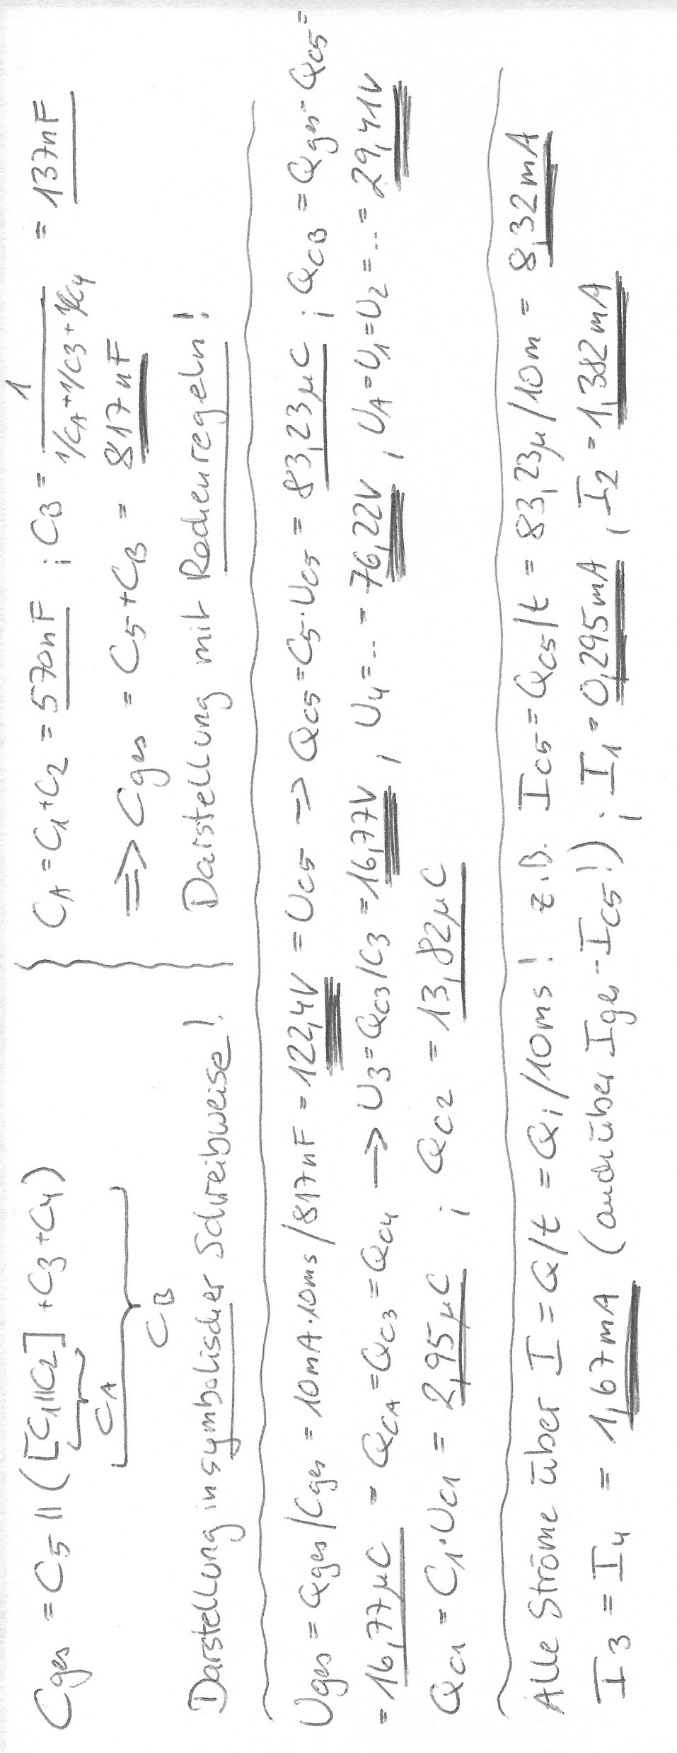 Cges = C5 || ([C1||C2] + C3 + C4)
CA
CB
Darstellung in symbolischer Schreibweise!
CA = C1 + C2 = 570nF ; CB = 1 / (1/CA + 1/C3 + 1/C4) = 137nF
=> Cges = C5 + CB = 817nF
Darstellung mit Rechenregeln!
Uges = Qges/Cges = 10mA·10ms/817nF = 122,4V = UC5 -> QC5 = C5·UC5 = 83,23µC ; QCB = Qges - QC5 =
= 16,77µC = QCA = QC3 = QC4 -> U3 = QC3/C3 = 16,77V , U4 = .. = 76,22V , UA = U1 = U2 = .. = 29,41V
QC1 = C1·UC1 = 2,95µC ; QC2 = 13,82µC
Alle Ströme über I = Q/t = Qi/10ms! z.B. IC5 = QC5/t = 83,23µ/10m = 8,32mA
I3 = I4 = 1,67mA (auch über Iges - IC5!) ; I1 = 0,295mA , I2 = 1,382mA